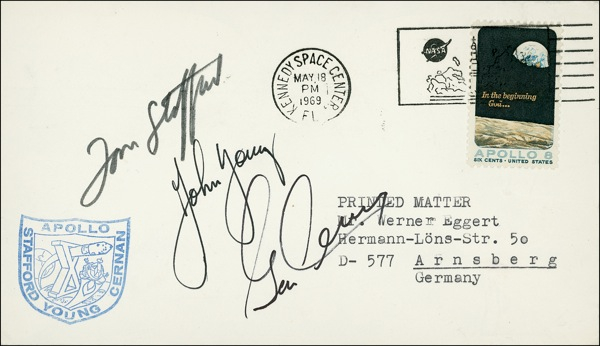 KENNEDY SPACE CENTER
MAY 18
PM
1969
FL
NASA
In the beginning
God...
APOLLO 8
SIX CENTS · UNITED STATES
Tom Stafford
John Young
Gene Cernan
PRINTED MATTER
Mr. Werner Eggert
Hermann-Löns-Str. 50
D- 577 Arnsberg
Germany
APOLLO
STAFFORD YOUNG CERNAN